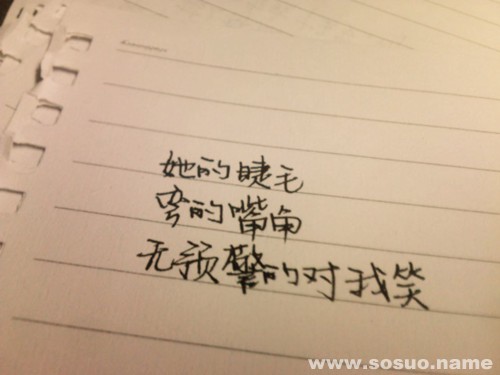 她的睫毛
弯的嘴角
无预警的对我笑
www.sosuo.name